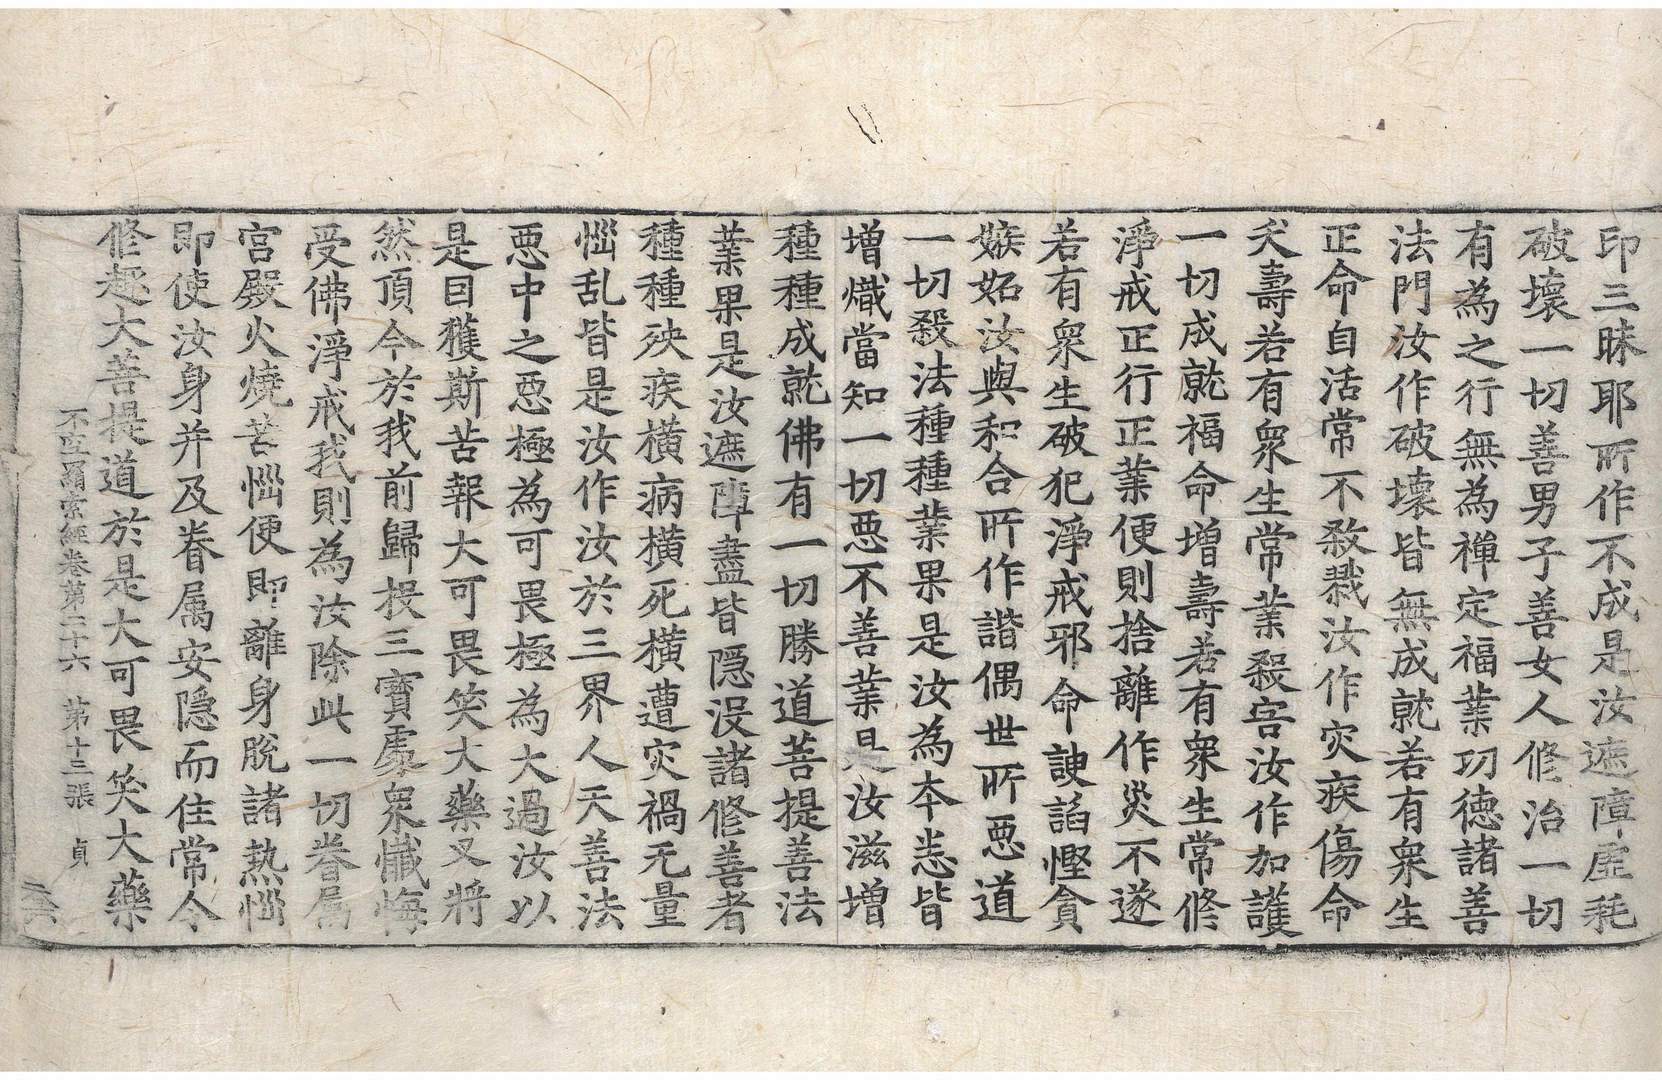 印三昧耶所作不成是汝遮障虛耗
破壞一切善男子善女人修治一切
有為之行無為禪定福業功德諸善
法門汝作破壞皆無成就若有衆生
正命自活常不殺戮汝作灾疾傷命
夭壽若有衆生常業殺害汝作加護
一切成就福命增壽若有衆生常修
淨戒正行正業便則捨離作災不遂
若有衆生破犯淨戒邪命諛諂慳貪
嫉妬汝與和合所作諧偶世所惡道
一切殺法種種業果是汝為本恙皆
增熾當知一切惡不善業是汝滋增
種種成就佛有一切勝道菩提善法
業果是汝遮障盡皆隱沒諸修善者
種種殃疾横病横死横遭灾禍无量
惱乱皆是汝作汝於三界人天善法
惡中之惡極為可畏極為大過汝以
是因獲斯苦報大可畏笑大藥叉將
然頂今於我前歸投三寶處衆懺悔
受佛淨戒我則為汝除此一切眷属
宮殿火燒苦惱便即離身脫諸热惱
即使汝身并及眷属安隱而住常令
修趣大菩提道於是大可畏笑大藥
不空羂索經卷第二十六 第十三張 貞